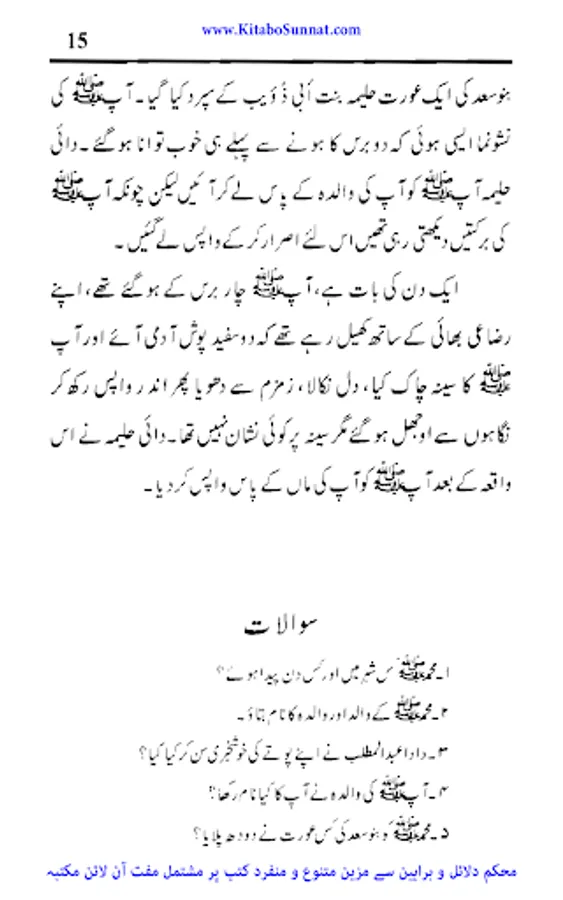 www.KitaboSunnat.com
15
بنو سعد کی ایک عورت حلیمہ بنت اَبی ذُؤیب کے سپرد کیا گیا۔ آپ ﷺ کی
نشوونما ایسی ہوئی کہ دو برس کا ہونے سے پہلے ہی خوب توانا ہوگئے۔ دائی
حلیمہ آپ ﷺ کو آپ کی والدہ کے پاس لے کر آئیں لیکن چونکہ آپ ﷺ
کی برکتیں دیکھتی رہی تھیں اس لئے اصرار کر کے واپس لے گئیں۔
ایک دن کی بات ہے، آپ ﷺ چار برس کے ہوگئے تھے، اپنے
رضاعی بھائی کے ساتھ کھیل رہے تھے کہ دو سفید پوش آدمی آئے اور آپ
ﷺ کا سینہ چاک کیا، دل نکالا، زمزم سے دھویا پھر اندر واپس رکھ کر
نگاہوں سے اوجھل ہوگئے مگر سینہ پر کوئی نشان نہیں تھا۔ دائی حلیمہ نے اس
واقعہ کے بعد آپ ﷺ کو آپ کی ماں کے پاس واپس کر دیا۔
سوالات
۱۔ محمد ﷺ کس شہر میں اور کس دن پیدا ہوئے؟
۲۔ محمد ﷺ کے والد اور والدہ کا نام بتاؤ۔
۳۔ دادا عبدالمطلب نے اپنے پوتے کی خوشخبری سن کر کیا کیا؟
۴۔ آپ ﷺ کی والدہ نے آپ کا کیا نام رکھا؟
۵۔ محمد ﷺ کو بنو سعد کی کس عورت نے دودھ پلایا؟
محکم دلائل و براہین سے مزین متنوع و منفرد کتب پر مشتمل مفت آن لائن مکتبہ